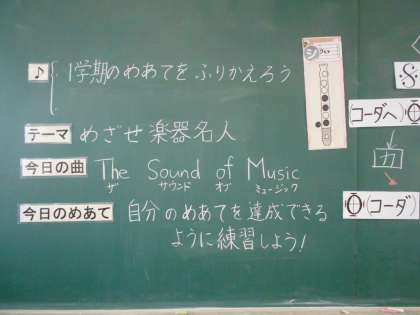 ♪ 1学期のめあてをふりかえろう
テーマ めざせ楽器名人
今日の曲 The Sound of Music
ザ サウンド オブ ミュージック
今日のめあて 自分のめあてを達成できる
ように練習しよう!
シ
(コーダへ)
(コーダ)